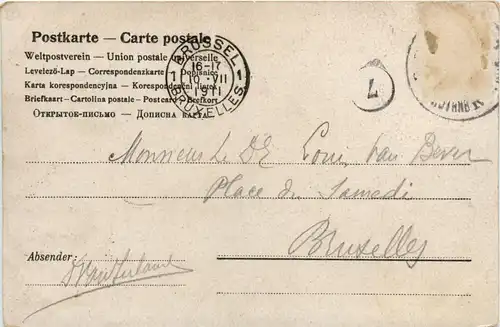 Postkarte — Carte postale
Weltpostverein — Union postale universelle
Levelező-Lap — Correspondenzkarte — Dopisnice
Karta korespondencyjna — Korespondenční lístek
Briefkaart — Cartolina postale — Postcard — Brefkort
ОТКРЫТОЕ-ПИСЬМО — ДОПИСНА КАРТА
BRUSSEL
16-17
1 10 VII 1
1911
BRUXELLES
Monsieur Le Dr Louis Van Bever
Place du Samedi
Bruxelles
Absender: